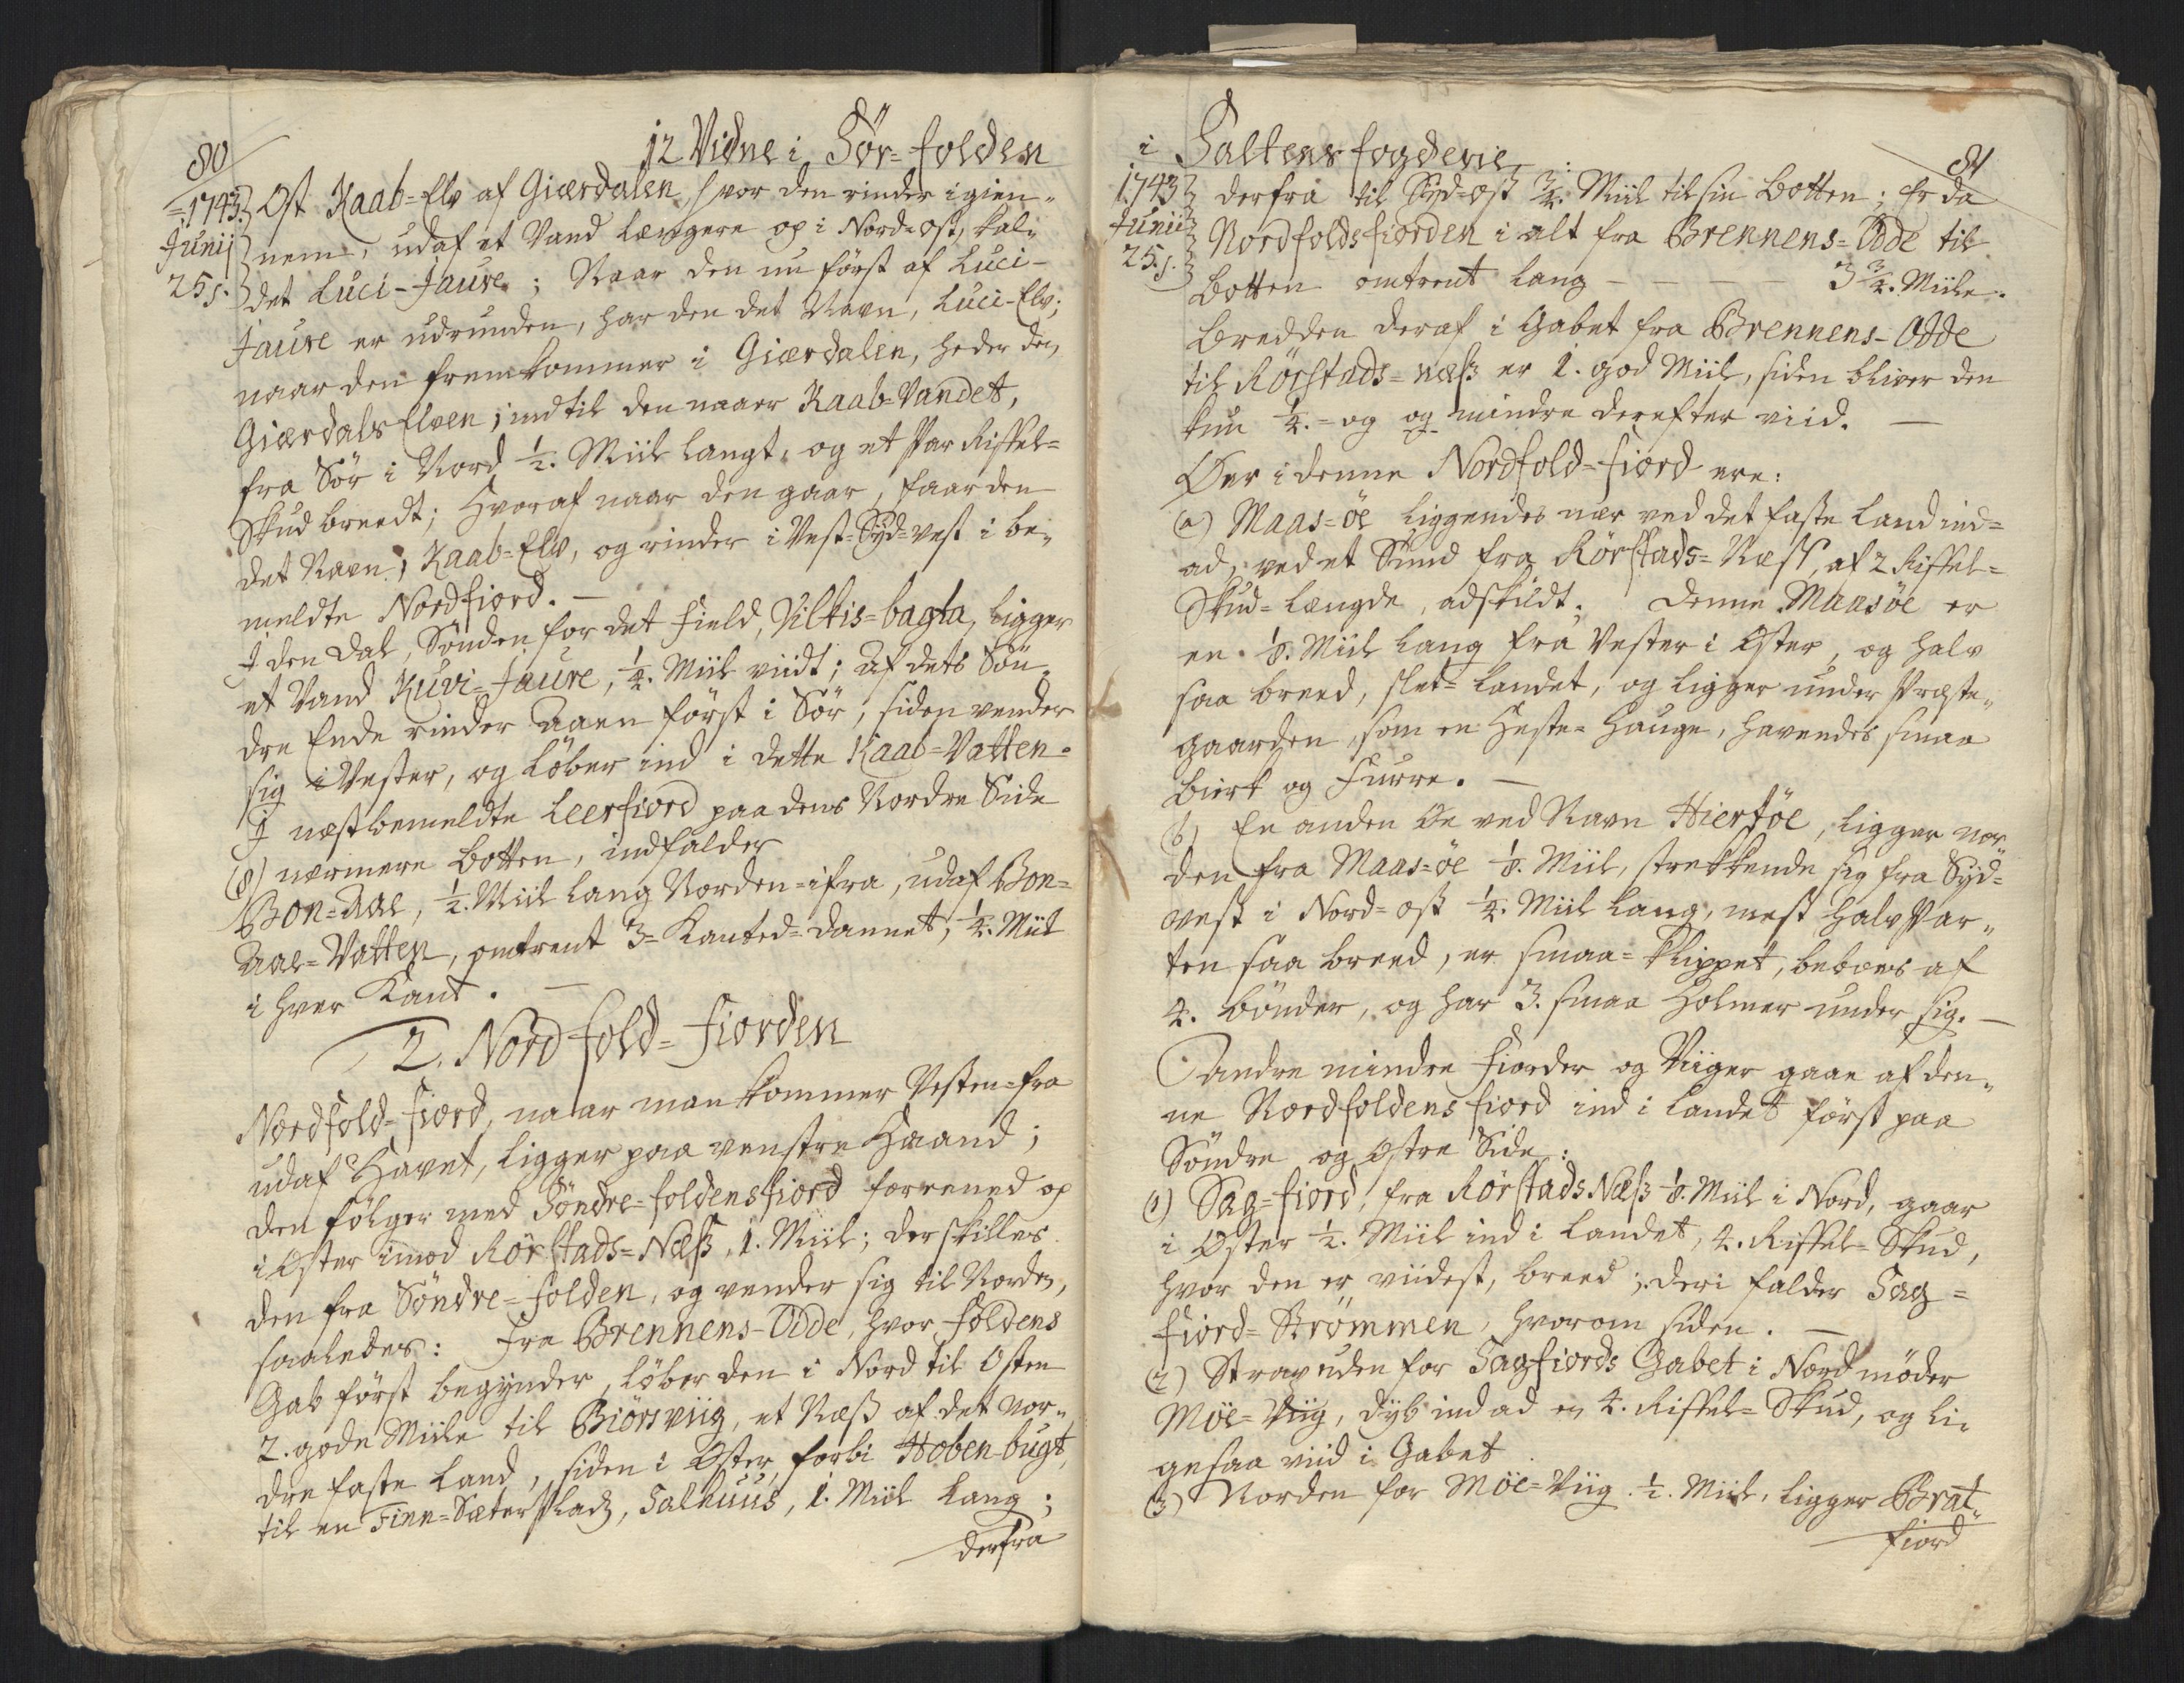 80
12 Vidne i Sør-folden
1743. Ost Kaab-Elv af Giærdalen, hvor den rinder igien-
Junij nem, udaf et Vand længere op i Nord-ost, kal-
25 s. det Luci-Jaure; Naar den nu först af Luci-
Jaure er udrunden, har den det Navn, Luci-Elv;
naar den fremkommer i Giærdalen, heder den,
Giærdals Elven, indtil den naaer Kaab-Vandet,
fra Sör i Nord ½. Miil langt, og et Par Riffel-
Skud breedt; Hvoraf naar den gaar, faar den
det Navn, Kaab-Elv, og rinder i Vest-Syd-vest i be-
meldte Nordfiord. —
I den Dal, Sönden for det Field, Vilkis-bagta, ligger
et Vand Kuvi-Jaure, ¼. Miil viidt; Af dets Sön-
dre Ende rinder Aaen först i Sör, siden vender
sig i Vester, og löber ind i dette Kaab-Vatten.
I næstbemeldte Leerfiord paa dens Nordre Side
(8) nærmere Botten, indfalder
Bon-Aae, ½. Miil lang Norden-ifra, udaf Bon-
Aae-Vatten, omtrent 3-Kanted-dannet, ¼. Miil
i hver Kant. —
2. Nordfold-Fiorden
Nordfold-Fiord, naar man kommer Vesten-fra
udaf Havet, ligger paa venstre Haand;
den fölger med Söndre-foldens fiord foreened op
i Oster imod Rörstads-Næss, 1. Miil; der skilles
den fra Söndre-folden, og vender sig til Norden,
saaledes: Fra Brennens-Odde, hvor foldens
Gab först begynder, löber den i Nord til Osten
2. gode Miile til Biörsviig, et Næss af det nor-
dre faste Land, siden i Oster forbi Hoben-bugt,
til en Finn-Sæter Plads, Salhuus, 1. Miil lang;
derfra
i Saltens fogderie.
81
1743 derfra til Syd-ost ¾. Miil til sin Botten; Er da
Junii Nordfoldsfiorden i alt fra Brennens-Odde til
25 s. Botten omtrent lang — — — — 3 ¾. Miile.
Bredden deraf i Gabet fra Brennens-Odde
til Rörstads-næss er 1. god Miil, siden bliver den
kun ¼. - og og mindre derefter viid. —
Öer i denne Nordfold-fiord ere:
(a) Maas-öe liggendes nær ved det faste Land ind-
ad, ved et Sund fra Rörstads-Næss, af 2 Riffel-
Skud-Længde, adskildt. Denne Maasöe er
en ⅛. Miil lang fra Vester i Oster, og halv
saa breed, slet-landet, og ligger under Præste-
gaarden som en Heste-Hauge, havendes smaa
Birk og Furre. —
(b) En anden Öe ved Navn Hiertöe, ligger nor-
den fra Maas-öe ⅛. Miil, strekkende sig fra Syd-
vest i Nord-ost ¼. Miil lang, mest halv Par-
ten saa breed, er smaa-klippet, beboes af
4. bönder, og har 3. smaa Holmer under sig. —
Andre mindre Fiorder og Viiger gaae af den-
ne Nordfoldens fiord ind i Landet först paa
Söndre og Ostre Side:
(1) Sag-fiord, fra Rörstads Næss ⅛. Miil i Nord, gaar
i Oster ½. Miil ind i Landet, 4. Riffel-Skud,
hvor den er viidest, breed; deri falder Sag-
fiord-Strømmen, hvorom siden. —
(2) Strax uden for Sagfiords Gabet i Nord möder
Möe-Viig, dyb ind ad en 4. Riffel-Skud, og li-
gesaa viid i Gabet
(3) Norden for Möe-Viig ½. Miil, ligger Brat-
fiord